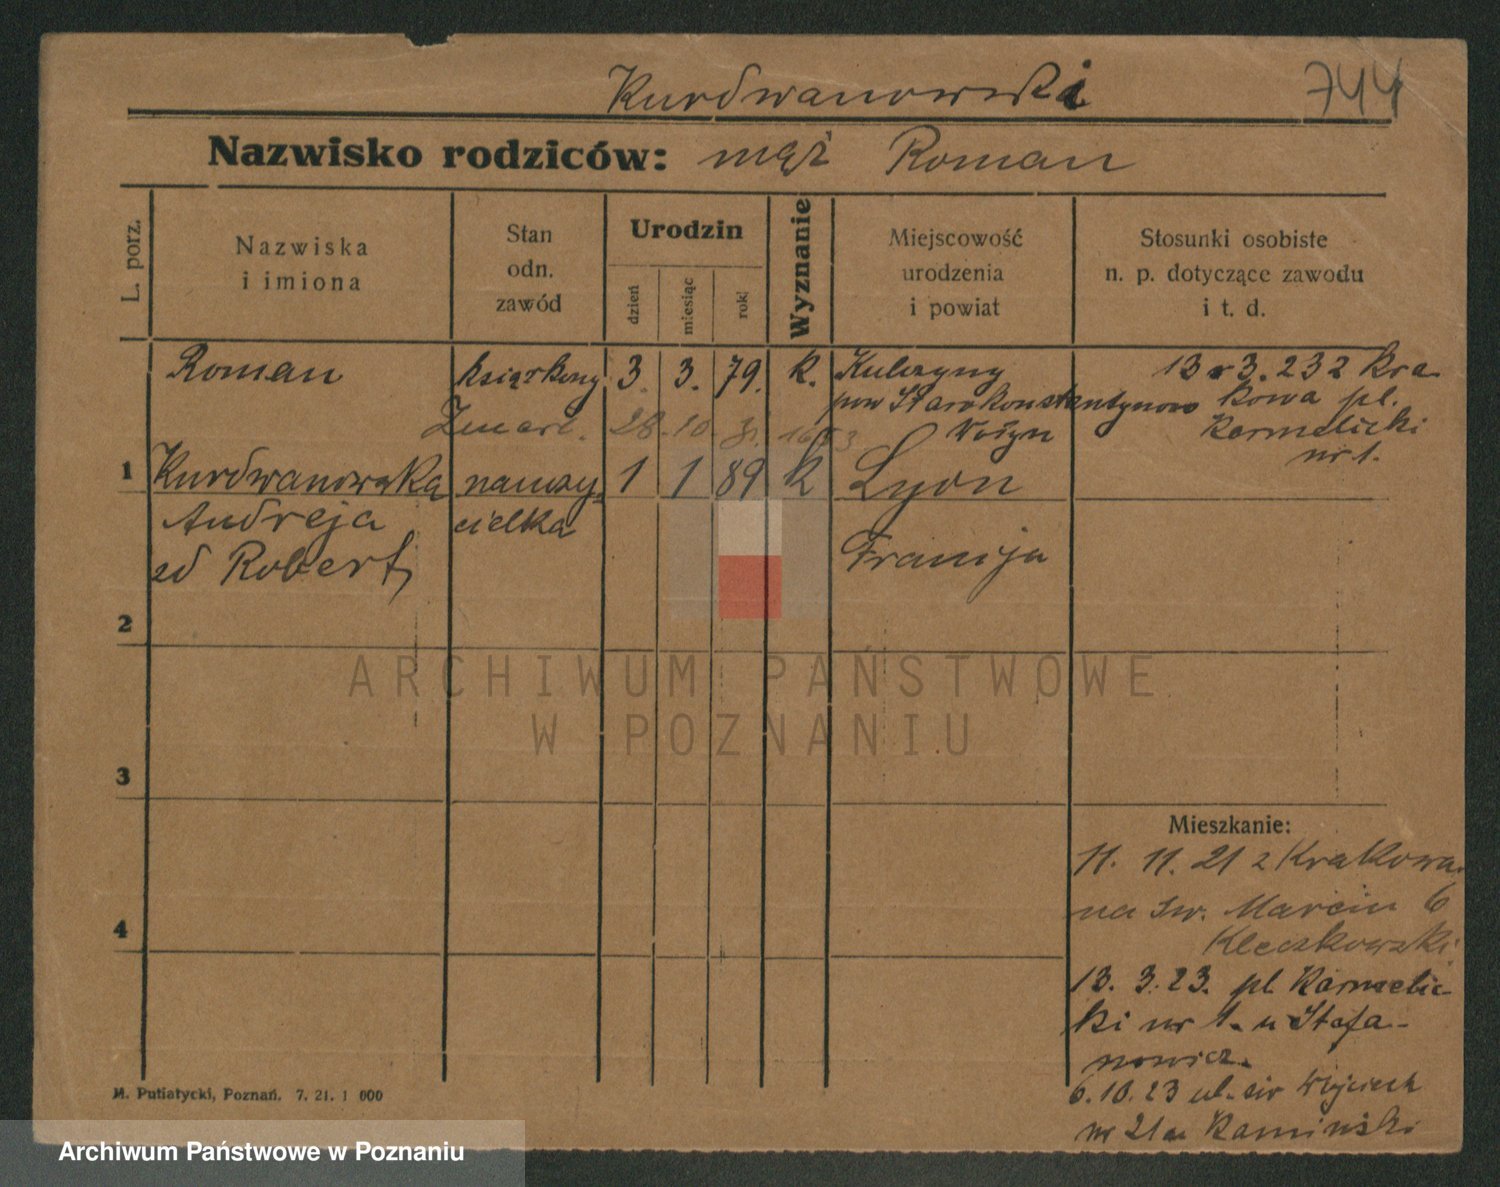 Kurdwanowski 744
Nazwisko rodziców: mąż Roman
L. porz.
Nazwiska
i imiona
Stan
odn.
zawód
Urodzin
dzień
miesiąc
rok
Wyznanie
Miejscowość
urodzenia
i powiat
Stosunki osobiste
n. p. dotyczące zawodu
i t. d.
Roman 3. 3. 79. k. 13 3. 23 z Kra
pow Starokonstantynowo kowa pl.
Zmarł. 28 10 31 Wołyn Karmelicki
nr 1.
1 Kurdwanowska nauczy- 1 1 89 k Lyon
Andreja cielka
zd Robert Francja
2
3
4
Mieszkanie:
11. 11. 21 z Krakowa
na św. Marcin 6
Kleczkowski.
13. 3. 23. pl Karmelic-
ki nr 1. u Stefa-
nowicz.
6. 10. 23 ul. św Wojciech
nr 21 u Kamiński
M. Putiatycki, Poznań. 7. 21. 1 000
ARCHIWUM PAŃSTWOWE
W POZNANIU
Archiwum Państwowe w Poznaniu